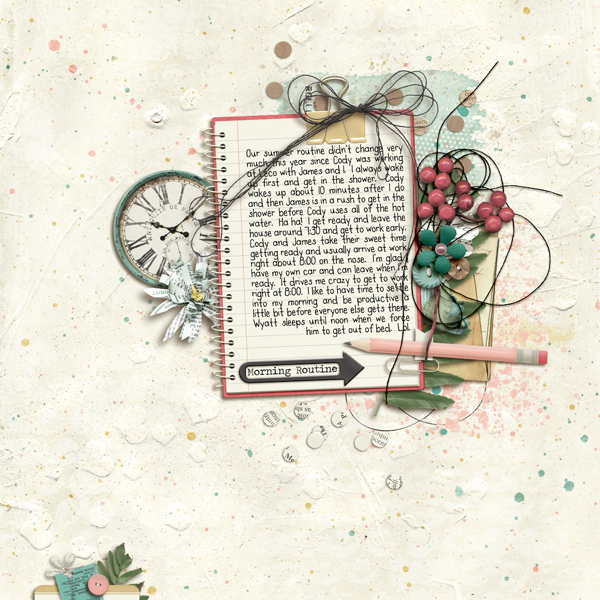 Our summer routine didn't change very
much this year since Cody was working
at Leco with James and I. I always wake
up first and get in the shower. Cody
wakes up about 10 minutes after I do
and then James is in a rush to get in the
shower before Cody uses all of the hot
water. Ha ha! I get ready and leave the
house around 7:30 and get to work early.
Cody and James take their sweet time
getting ready and usually arrive at work
right about 8:00 on the nose. I'm glad I
have my own car and can leave when I'm
ready. It drives me crazy to get to work
right at 8:00. I like to have time to settle
into my morning and be productive a
little bit before everyone else gets there.
Wyatt sleeps until noon when we force
him to get out of bed. Lol.
Morning Routine